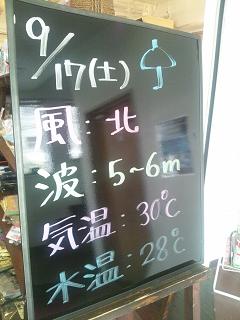 9/17(土)
風:北
波:5~6m
気温:30℃
水温:28℃